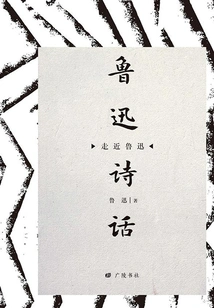 鲁迅诗话
走近鲁迅
鲁 迅 | 著
广陵书社